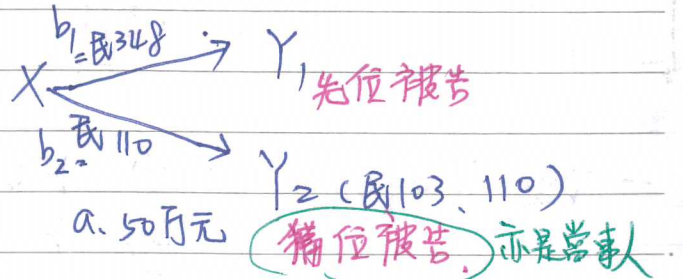 b₁=民348
Y₁ 先位被告
X
b₂=民110
Y₂(民103、110)
a、50万元
備位被告、亦是當事人